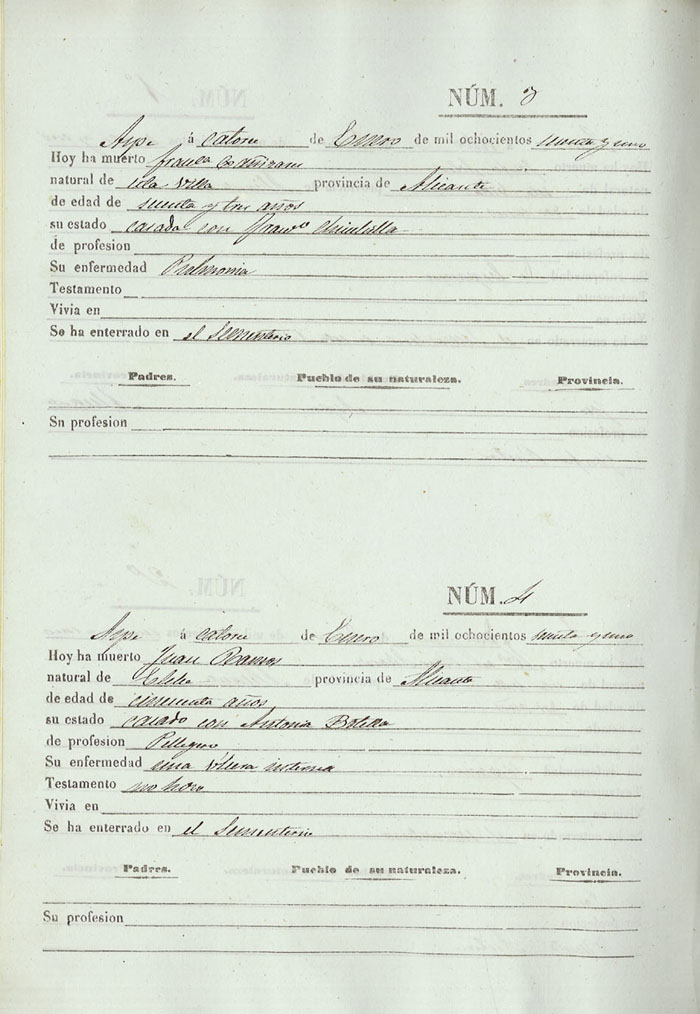 NÚM. 3
Aspe á catorce de Enero de mil ochocientos y uno
Hoy ha muerto Franca
natural de esta Villa provincia de Alicante
de edad de y tres años
su estado casada con Franco Chinchilla
de profesion
Su enfermedad Pulmonia
Testamento
Vivia en
Se ha enterrado en el Sementerio
Padres. Pueblo de su naturaleza. Provincia.
Su profesion
NÚM. 4
Aspe á catorce de Enero de mil ochocientos y uno
Hoy ha muerto Juan Ramos
natural de Elche provincia de Alicante
de edad de cincuenta años
su estado casado con Antonia Botella
de profesion
Su enfermedad una interna
Testamento no hizo
Vivia en
Se ha enterrado en el Sementerio
Padres. Pueblo de su naturaleza. Provincia.
Su profesion